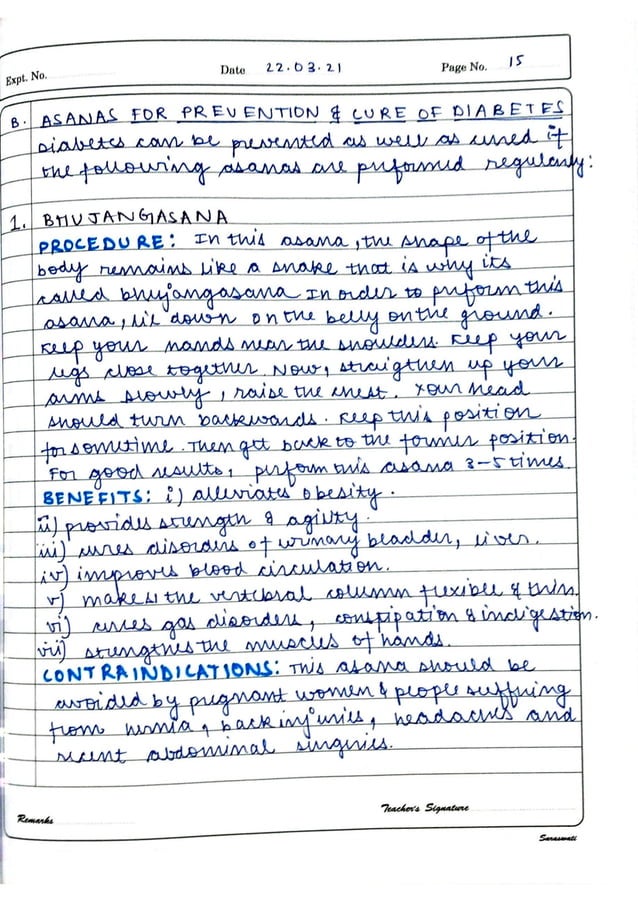 Expt. No.
Date 22.03.21
Page No. 15
B. ASANAS FOR PREVENTION & CURE OF DIABETES
Diabetes can be prevented as well as cured if
the following asanas are performed regularly:
1. BHUJANGASANA
PROCEDURE: In this asana, the shape of the
body remains like a snake that is why its
called bhujangasana In order to perform this
asana, lie down on the belly on the ground.
Keep your hands near the shoulders. Keep your
legs close together. Now, straigthen up your
arms slowly, raise the chest. Your head
should turn backwards. Keep this position
for sometime. Then get back to the former position.
For good results, perform this asana 3-5 times.
BENEFITS: i) alleviates obesity.
ii) provides strength & agility.
iii) cures disorders of urinary bladder, liver.
iv) improves blood circulation.
v) makes the vertebral column flexible & thin.
vi) cures gas disorders, constipation & indigestion.
vii) strengthes the muscles of hands.
CONTRAINDICATIONS: This asana should be
avoided by pregnant women & people suffering
from hernia, back injuries, headaches and
recent abdominal surgeries.
Teacher's Signature
Remarks
Saraswati